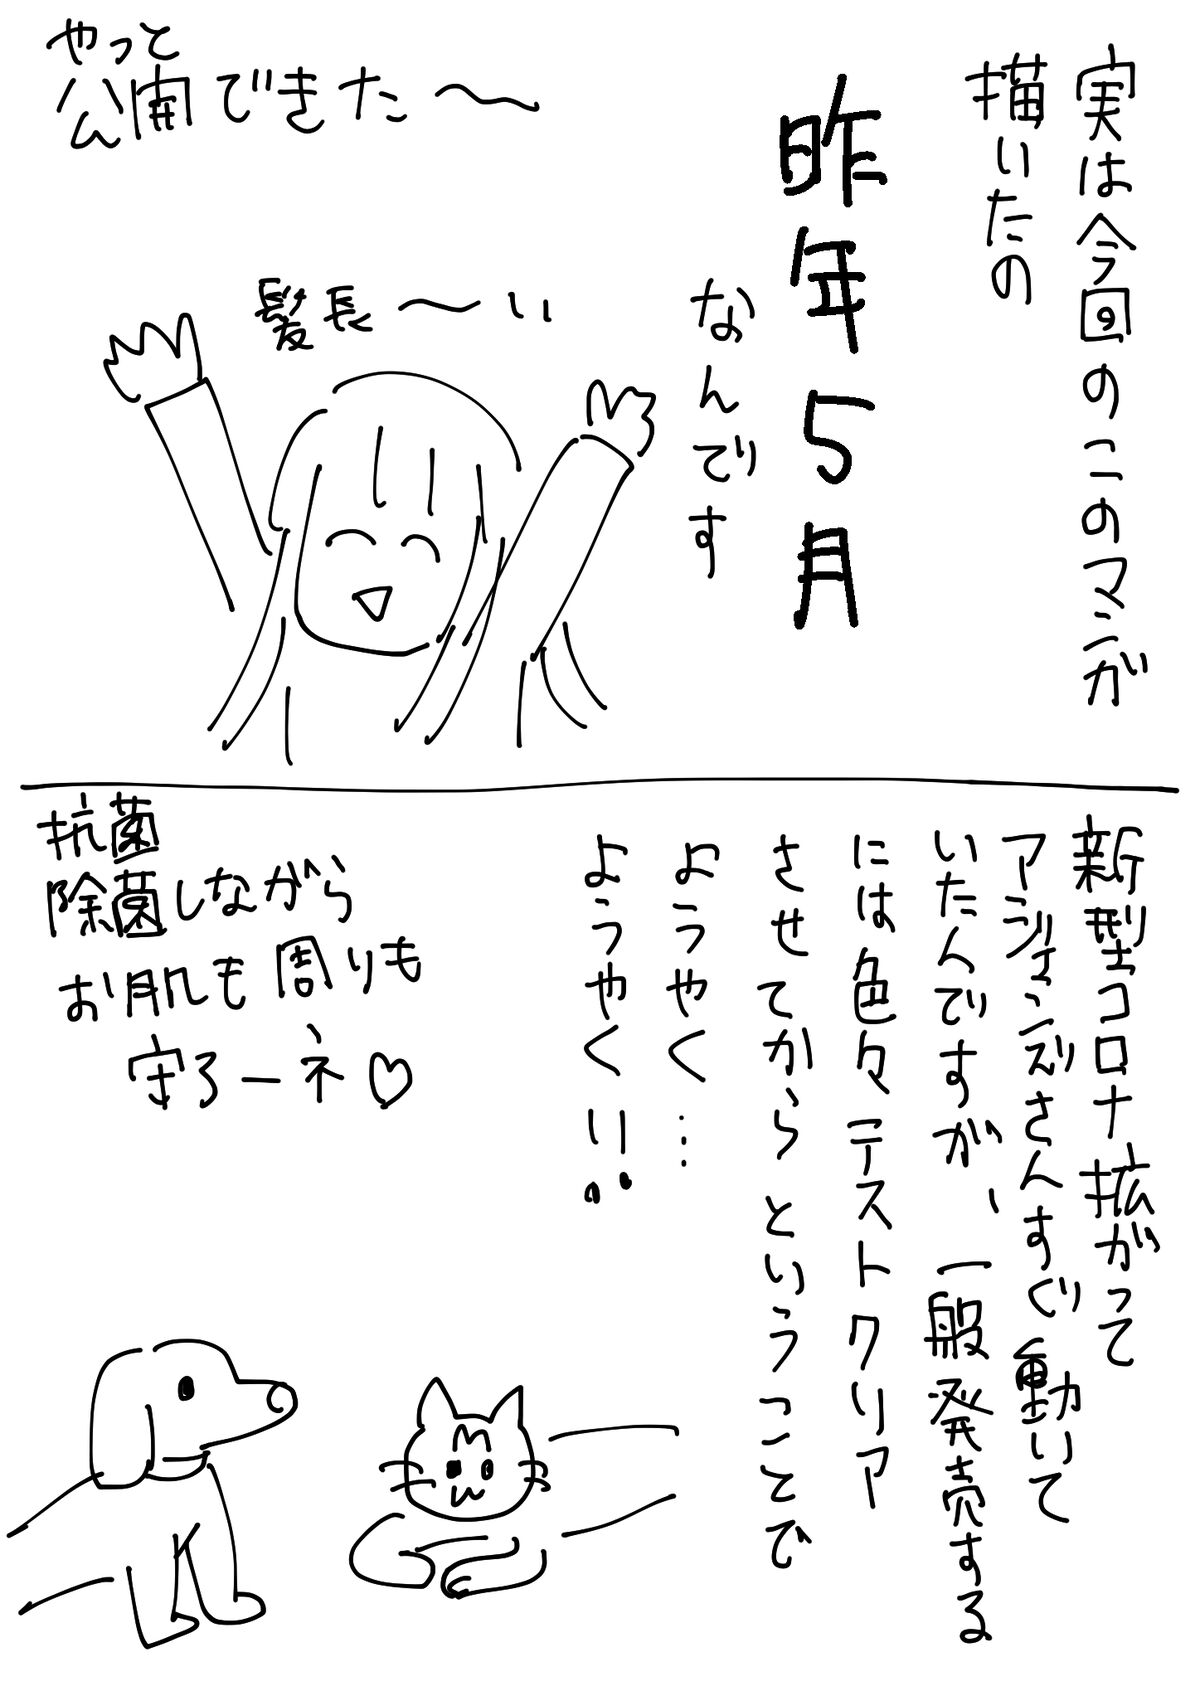 実は今回のこのマンガ
描いたの
昨年5月
なんです
やっと
公開できた〜
髪長〜い
新型コロナ拡がって
アジュバンさんすぐ動いて
いたんですが、一般発売する
には色々テストクリア
させてからということで
ようやく…
ようやく!!
抗菌
除菌しながら
お肌も周りも
守ろーネ♡